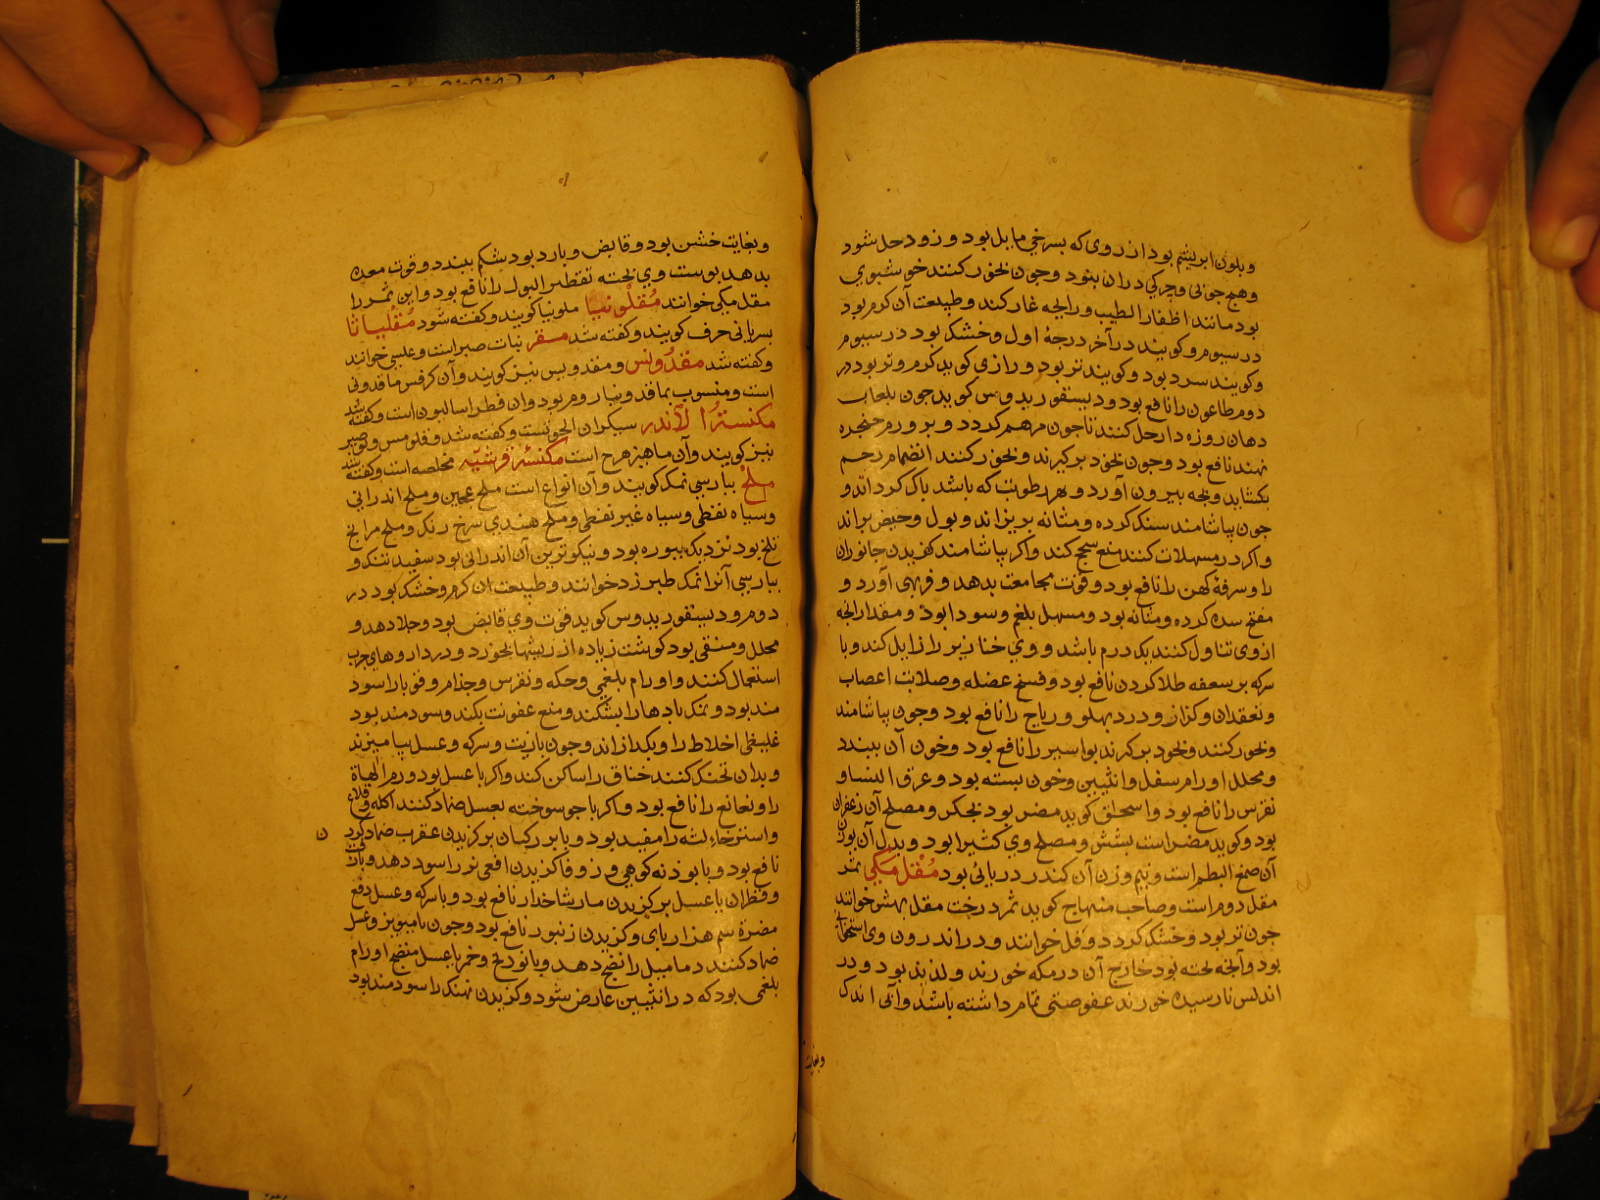 وبلون ابریشم بود از روی که بسرخی مایل بود و زود حل شود
وهیچ چوبی وچرکی در ان نبود وچون بخور کنند خوشبوی
بود مانند اظفار الطیب ورایحه غار کند وطبیعت آن کرم بود
در سیوم وکویند در آخر درجۀ اول وخشک بود در سیوم
وکویند سرد بود وکویند تر بود ورازی کوید کرم وتر بود در
دوم طاعون را نافع بود ودیسقوریدوس کوید چون بلعاب
دهان روزه دار حل کنند تا چون مرهم کردد وبر ورم حنجره
نهند نافع بود وچون بخود برکیرند وبخور کنند انضمام رحم
بکشاید وبچه بیرون آورد وهر رطوبت که باشد پاک کرداند و
چون بیاشامند سنک کرده ومثانه بریزاند وبول وحیض براند
واکر در مسهلات کنند منع سحج کند واکر بیاشامند کزیدن جانوران
را وسرفۀ کهن را نافع بود وقوت مجامعت بدهد وفربهی آورد و
مفتح سدۀ کرده ومثانه بود ومسهل بلغم وسودا بود ومقدار انچه
ازوی تناول کنند یک درم باشد و وی خنازیر را زایل کند وبا
سرکه بر سعفه طلا کردن نافع بود وفسخ عضله وصلابت اعصاب
وتعقد ان وکزاز ودرد پهلو وریاح را نافع بود وچون بیاشامند
وبخور کنند وبخود برکیرند بواسیر را نافع بود وخون آن ببندد
ومحلل اورام سفل وانثیین وخون بسته بود وعرق النسا و
نقرس را نافع بود واسحق کوید مضر بود بجکر ومصلح آن زعفران
بود وکوید مضر است بشش ومصلح وی کثیرا بود وبدل آن بوزن
آن صمغ البطم است ونیم وزن آن کندر دریائی بود مُقْل مَکّی ثمر
مقل دوم است وصاحب منهاج کوید ثمر درخت مقل بهش خوانند
چون تر بود وخشک کردد وقل خوانند ودر اندرون وی استخوان
بود وآنچه پخته بود خارج آن در مکه خورند ولذیذ بود ودر
اندلس نارسیده خورند عفوصتی تمام داشته باشد وآنی اندک
وبغایت
وبغایت خشن بود وقابض وبارد بود شکم ببندد وقوت معده
بدهد پوست وی پخته تقطیر البول را نافع بود واین ثمر را
مقل مکی خوانند مُقلُونیا ملونیا کویند وکفته شود مُقلیاثا
بسریانی حرف کویند وکفته شد مقر نبات صبر است وعلسی خوانند
وکفته شد مقدُونس ومقدویس نیز کویند وآن کرفس ماقدونی
است ومنسوب بماقدونیا روم بود وان فطراسالیون است وکفته شد
مکنسةُ الاَندر سیکران الحوتست وکفته شد وقلومس وبوصیر
نیز کویند وآن ماهیزهرج است مکنسۀ قرشیّه مخلصه است وکفته شد
ملحْ بپارسی نمک کویند وآن انواع است ملح عجین وملح اندرانی
وسیاه نفطی وسیاه غیر نفطی وملح هندی سرخ رنک وملح مر ان
تلخ بود نزدیک ببوره بود ونیکوترین آن اندرانی بود سفید تنک و
بپارسی آنرا نمک طبرزد خوانند وطبیعت ان کرم وخشک بود در
دوم ودیسقوریدوس کوید قوت وی قابض بود وجلا دهد و
محلل ومنقی بود کوشت زیاده از ریشها بخورد ودر داروهای جرب
استعمال کنند واورام بلغمی وحکه ونقرس وجذام وقوبا را سود
مند بود ونمک بادها را بشکند ومنع عفونت بکند وسودمند بود
غلیظی اخلاط را وبکدازاند وچون با زیت وسرکه وعسل بیامیزند
وبدان تحنک کنند خناق را ساکن کند واکر با عسل بود ورم الهاة
را ونغانغ را نافع بود واکر با جو سوخته بعسل ضماد کنند آکله وقلاع
واسترخاء لثه را مفید بود وبا بزر کتان بر کزیدن عقرب ضماد کردن
نافع بود وبا پودنه کوهی وزوفا کزیدن افعی نر را سود دهد وبا زفت
وقطران یا عسل بر کزیدن مار شاخدار نافع بود وبا سرکه وعسل دفع
مضرة سم هزارپای وکزیدن زنبور نافع بود وچون با مویز وعسل
ضماد کنند دمامیل را نضج دهد وبا پودنج وخمر با عسل منضج اورام
بلغمی بود که در انثیین عارض شود وکزیدن نهنک را سودمند بود